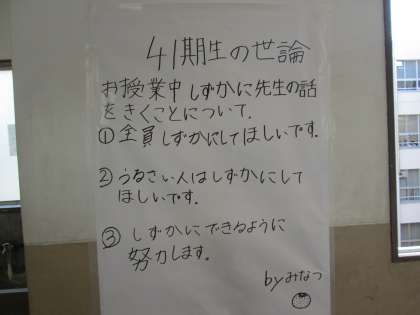 41期生の世論
お授業中しずかに先生の話
をきくことについて.
①全員しずかにしてほしいです.
②うるさい人はしずかにして
ほしいです.
③しずかにできるように
努力します.
byみなつ